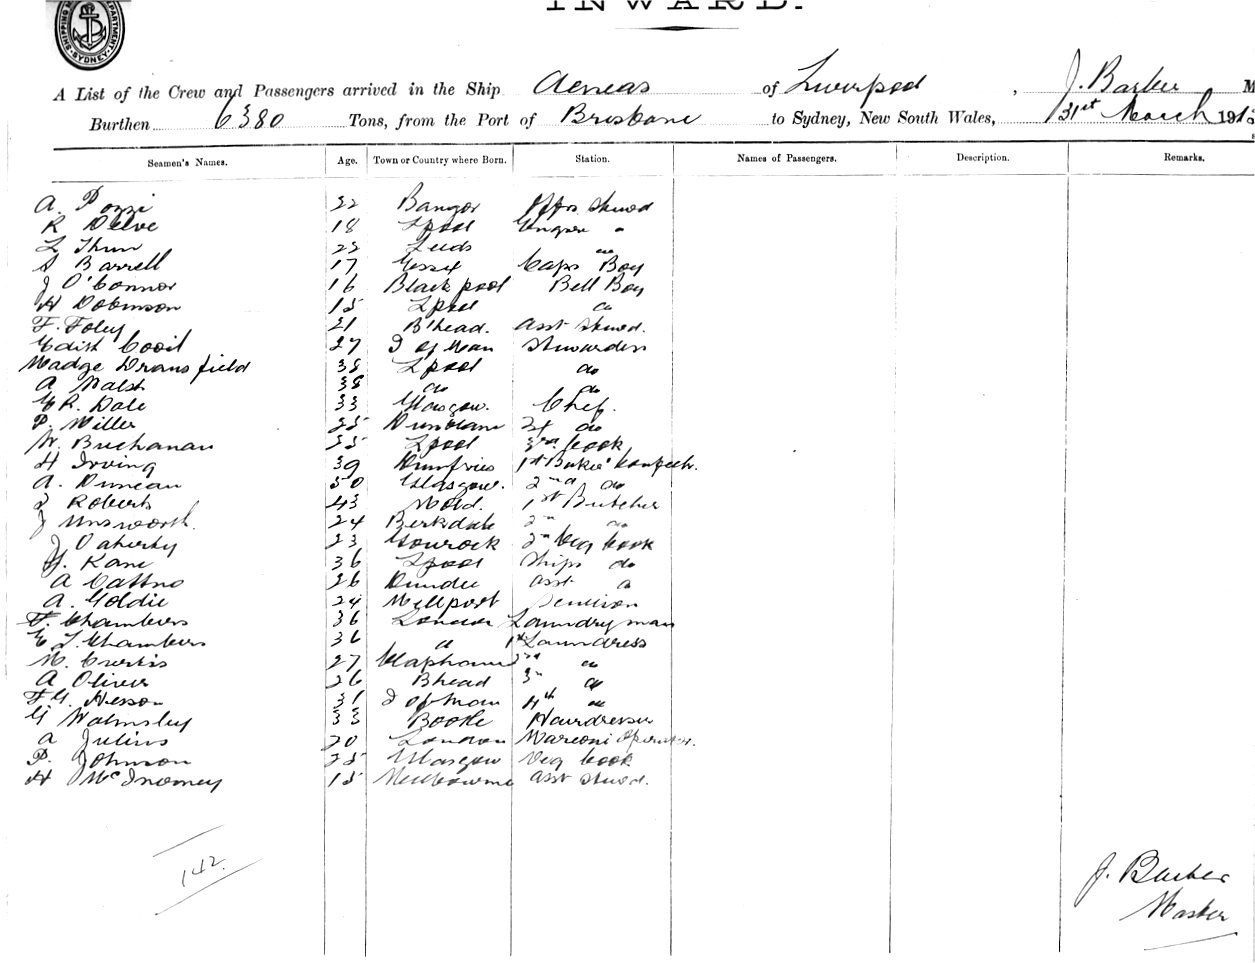 INWARD.
SHIPPING DEPARTMENT, SYDNEY
A List of the Crew and Passengers arrived in the Ship Aeneas of Liverpool, J. Barber M
Burthen 6380 Tons, from the Port of Brisbane to Sydney, New South Wales, 31st March 191
Seamen's Names. Age. Town or Country where Born. Station. Names of Passengers. Description. Remarks.
A. 22 Bangor Offrs Stewd
R Delve 18 Lpool Engnr "
L Thun Leeds do
S Barrell 17 Essex Caps Boy
J O'Connor 16 Blackpool Bell Boy
H Dobinson 15 Lpool do
F. Foley 21 B'head. Asst Stewd.
Edith Cooil 27 I of Man Stewardess
Madge Dransfield 38 Lpool do
A Walsh 38 do do
E R. Dale 33 Glasgow. Chef.
P. Miller Dunblane 2d do
W. Buchanan Lpool 3rd Cook
H Irving 39 Dumfries 1st Baker Confectr.
A. Duncan 50 Glasgow. 2nd do
Roberts 43 Mold. 1st Butcher
J Unsworth. 24 Berkdale 2nd do
J Daherty 23 Gourock 2nd Veg Cook
J. Kane 36 Lpool Ships do
A 26 Dundee asst do
A. Goldie 24 Millport
F. Chambers 36 London Laundryman
E L. Chambers 36 do 1st Laundress
M. Curtis 27 Clapham 2nd do
A Oliver 26 Bhead 3rd do
F G. Hesson 31 I of Man 4th do
G Walmsley 33 Bootle Hairdresser
A Julius 20 London Marconi Operator.
P. Johnson 25 Glasgow Veg Cook
H McInorney 15 Melbourne asst Stewd.
142.
J. Barber
Master